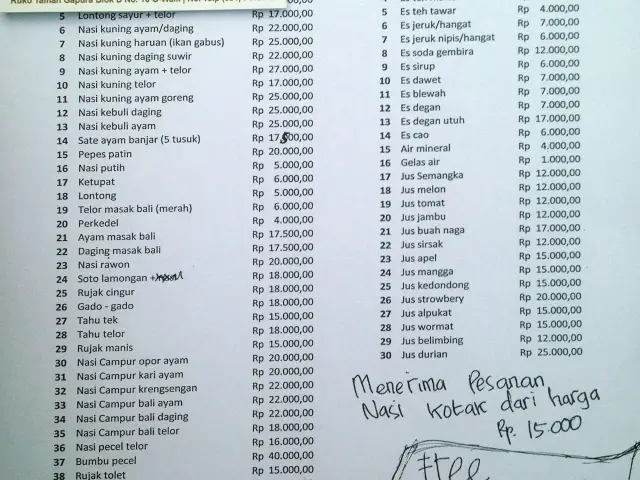 5 Lontong sayur + telor Rp 17.000,00
6 Nasi kuning ayam/daging Rp 22.000,00
7 Nasi kuning haruan (ikan gabus) Rp 25.000,00
8 Nasi kuning daging suwir Rp 22.000,00
9 Nasi kuning ayam + telor Rp 27.000,00
10 Nasi kuning telor Rp 22.000,00
11 Nasi kuning ayam goreng Rp 25.000,00
12 Nasi kebuli daging Rp 25.000,00
13 Nasi kebuli ayam Rp 25.000,00
14 Sate ayam banjar (5 tusuk) Rp 17.500,00
15 Pepes patin Rp 20.000,00
16 Nasi putih Rp 5.000,00
17 Ketupat Rp 6.000,00
18 Lontong Rp 5.000,00
19 Telor masak bali (merah) Rp 6.000,00
20 Perkedel Rp 4.000,00
21 Ayam masak bali Rp 17.500,00
22 Daging masak bali Rp 17.500,00
23 Nasi rawon Rp 20.000,00
24 Soto lamongan + Rp 18.000,00
25 Rujak cingur Rp 18.000,00
26 Gado - gado Rp 18.000,00
27 Tahu tek Rp 15.000,00
28 Tahu telor Rp 18.000,00
29 Rujak manis Rp 15.000,00
30 Nasi Campur opor ayam Rp 20.000,00
31 Nasi Campur kari ayam Rp 20.000,00
32 Nasi Campur krengsengan Rp 22.000,00
33 Nasi Campur bali ayam Rp 22.000,00
34 Nasi Campur bali daging Rp 22.000,00
35 Nasi Campur bali telor Rp 18.000,00
36 Nasi pecel telor Rp 16.000,00
37 Bumbu pecel Rp 40.000,00
38 Rujak tolet Rp 15.000,00
5 Es teh tawar Rp 4.000,00
6 Es jeruk/hangat Rp 6.000,00
7 Es jeruk nipis/hangat Rp 6.000,00
8 Es soda gembira Rp 12.000,00
9 Es sirup Rp 6.000,00
10 Es dawet Rp 7.000,00
11 Es blewah Rp 7.000,00
12 Es degan Rp 7.000,00
13 Es degan utuh Rp 17.000,00
14 Es cao Rp 6.000,00
15 Air mineral Rp 4.000,00
16 Gelas air Rp 1.000,00
17 Jus Semangka Rp 12.000,00
18 Jus melon Rp 12.000,00
19 Jus tomat Rp 12.000,00
20 Jus jambu Rp 12.000,00
21 Jus buah naga Rp 17.000,00
22 Jus sirsak Rp 12.000,00
23 Jus apel Rp 15.000,00
24 Jus mangga Rp 15.000,00
25 Jus kedondong Rp 15.000,00
26 Jus strowbery Rp 20.000,00
27 Jus alpukat Rp 15.000,00
28 Jus wormat Rp 15.000,00
29 Jus belimbing Rp 12.000,00
30 Jus durian Rp 25.000,00
Menerima Pesanan
Nasi kotak dari harga
Rp. 15.000